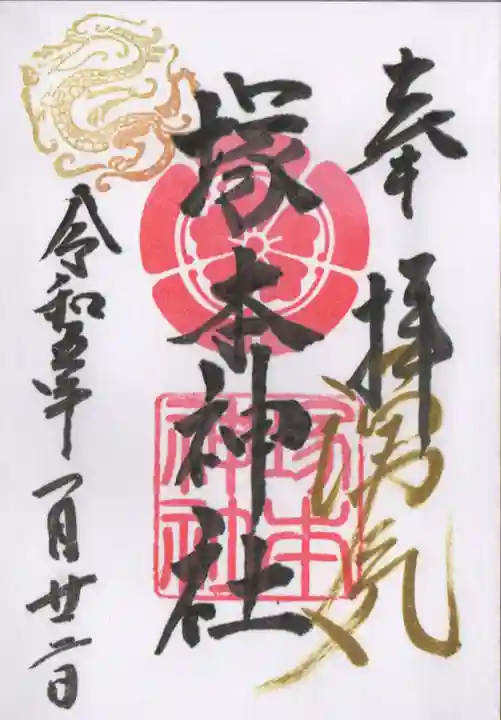 奉拝
気
塚本神社
塚本
神社
令和五年一月廿二日